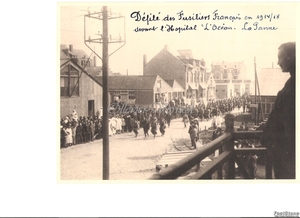 Défilé des Fusiliers Français en 1914/18
devant l'Hospital "L'Océan. La Panne
FastStone